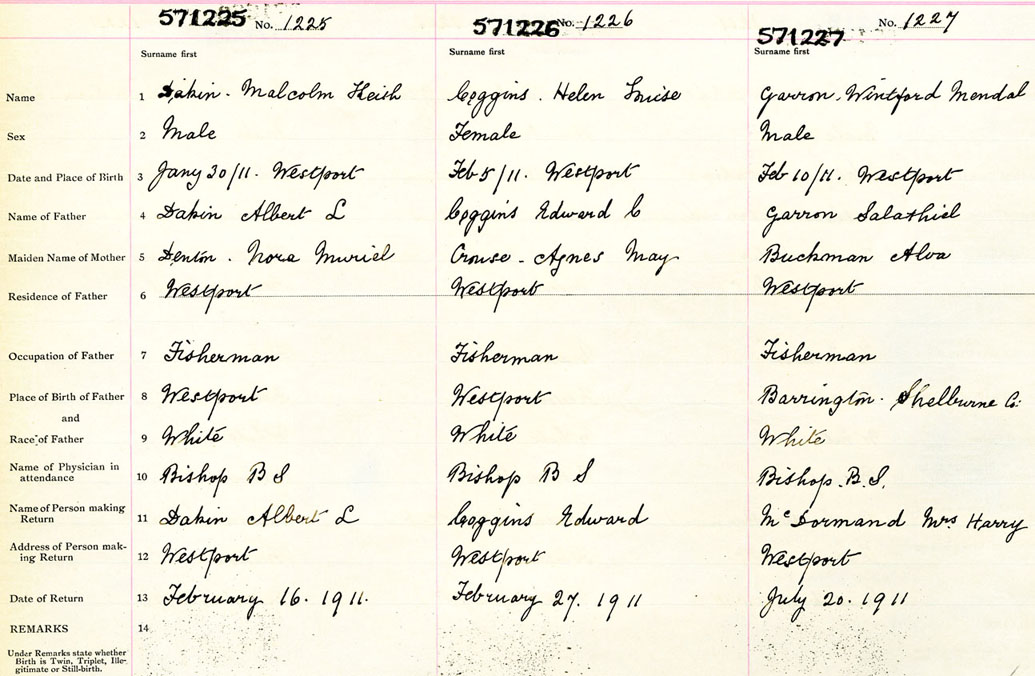 571225 No. 1225 571226 No. 1226 571227 No. 1227
Surname first Surname first Surname first
Name 1 Dakin. Malcolm Keith Coggins. Helen Louise Garron. Wintford Mendal
Sex 2 Male Female Male
Date and Place of Birth 3 Jany 30/11. Westport Feb 5/11. Westport Feb 10/11. Westport
Name of Father 4 Dakin Albert L Coggins Edward C Garron Salathiel
Maiden Name of Mother 5 Denton. Nora Muriel Crouse - Agnes May Buckman Alva
Residence of Father 6 Westport Westport Westport
Occupation of Father 7 Fisherman Fisherman Fisherman
Place of Birth of Father 8 Westport Westport Barrington. Shelburne Co:
and
Race of Father 9 White White White
Name of Physician in
attendance 10 Bishop B S Bishop B S Bishop. B. S.
Name of Person making
Return 11 Dakin Albert L Coggins Edward McDormand Mrs Harry
Address of Person mak-
ing Return 12 Westport Westport Westport
Date of Return 13 February 16. 1911. February 27. 1911 July 20. 1911
REMARKS 14
Under Remarks state whether
Birth is Twin, Triplet, Ille-
gitimate or Still-birth.